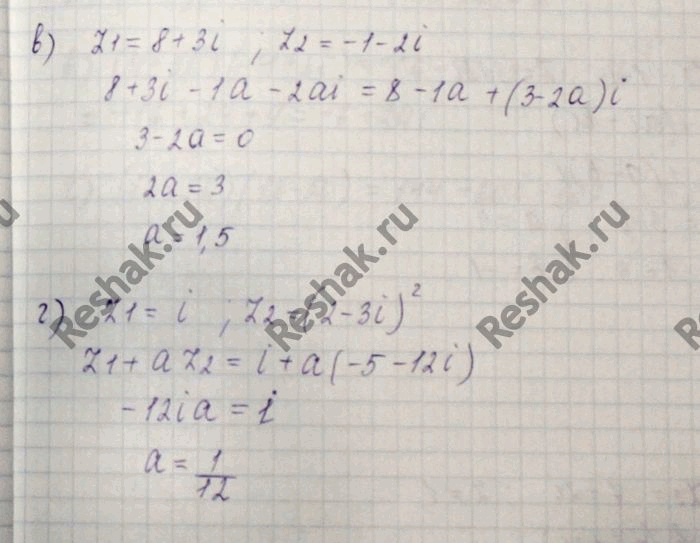 в) z1 = 8 + 3i ; z2 = -1 - 2i
8 + 3i - 1a - 2ai = 8 - 1a + (3-2a)i
3 - 2a = 0
2a = 3
a = 1,5
г) z1 = i ; z2 = (2-3i)²
z1 + a z2 = i + a(-5 - 12i)
-12ia = i
a = 1/12
Reshak.ru
Reshak.ru
Reshak.ru